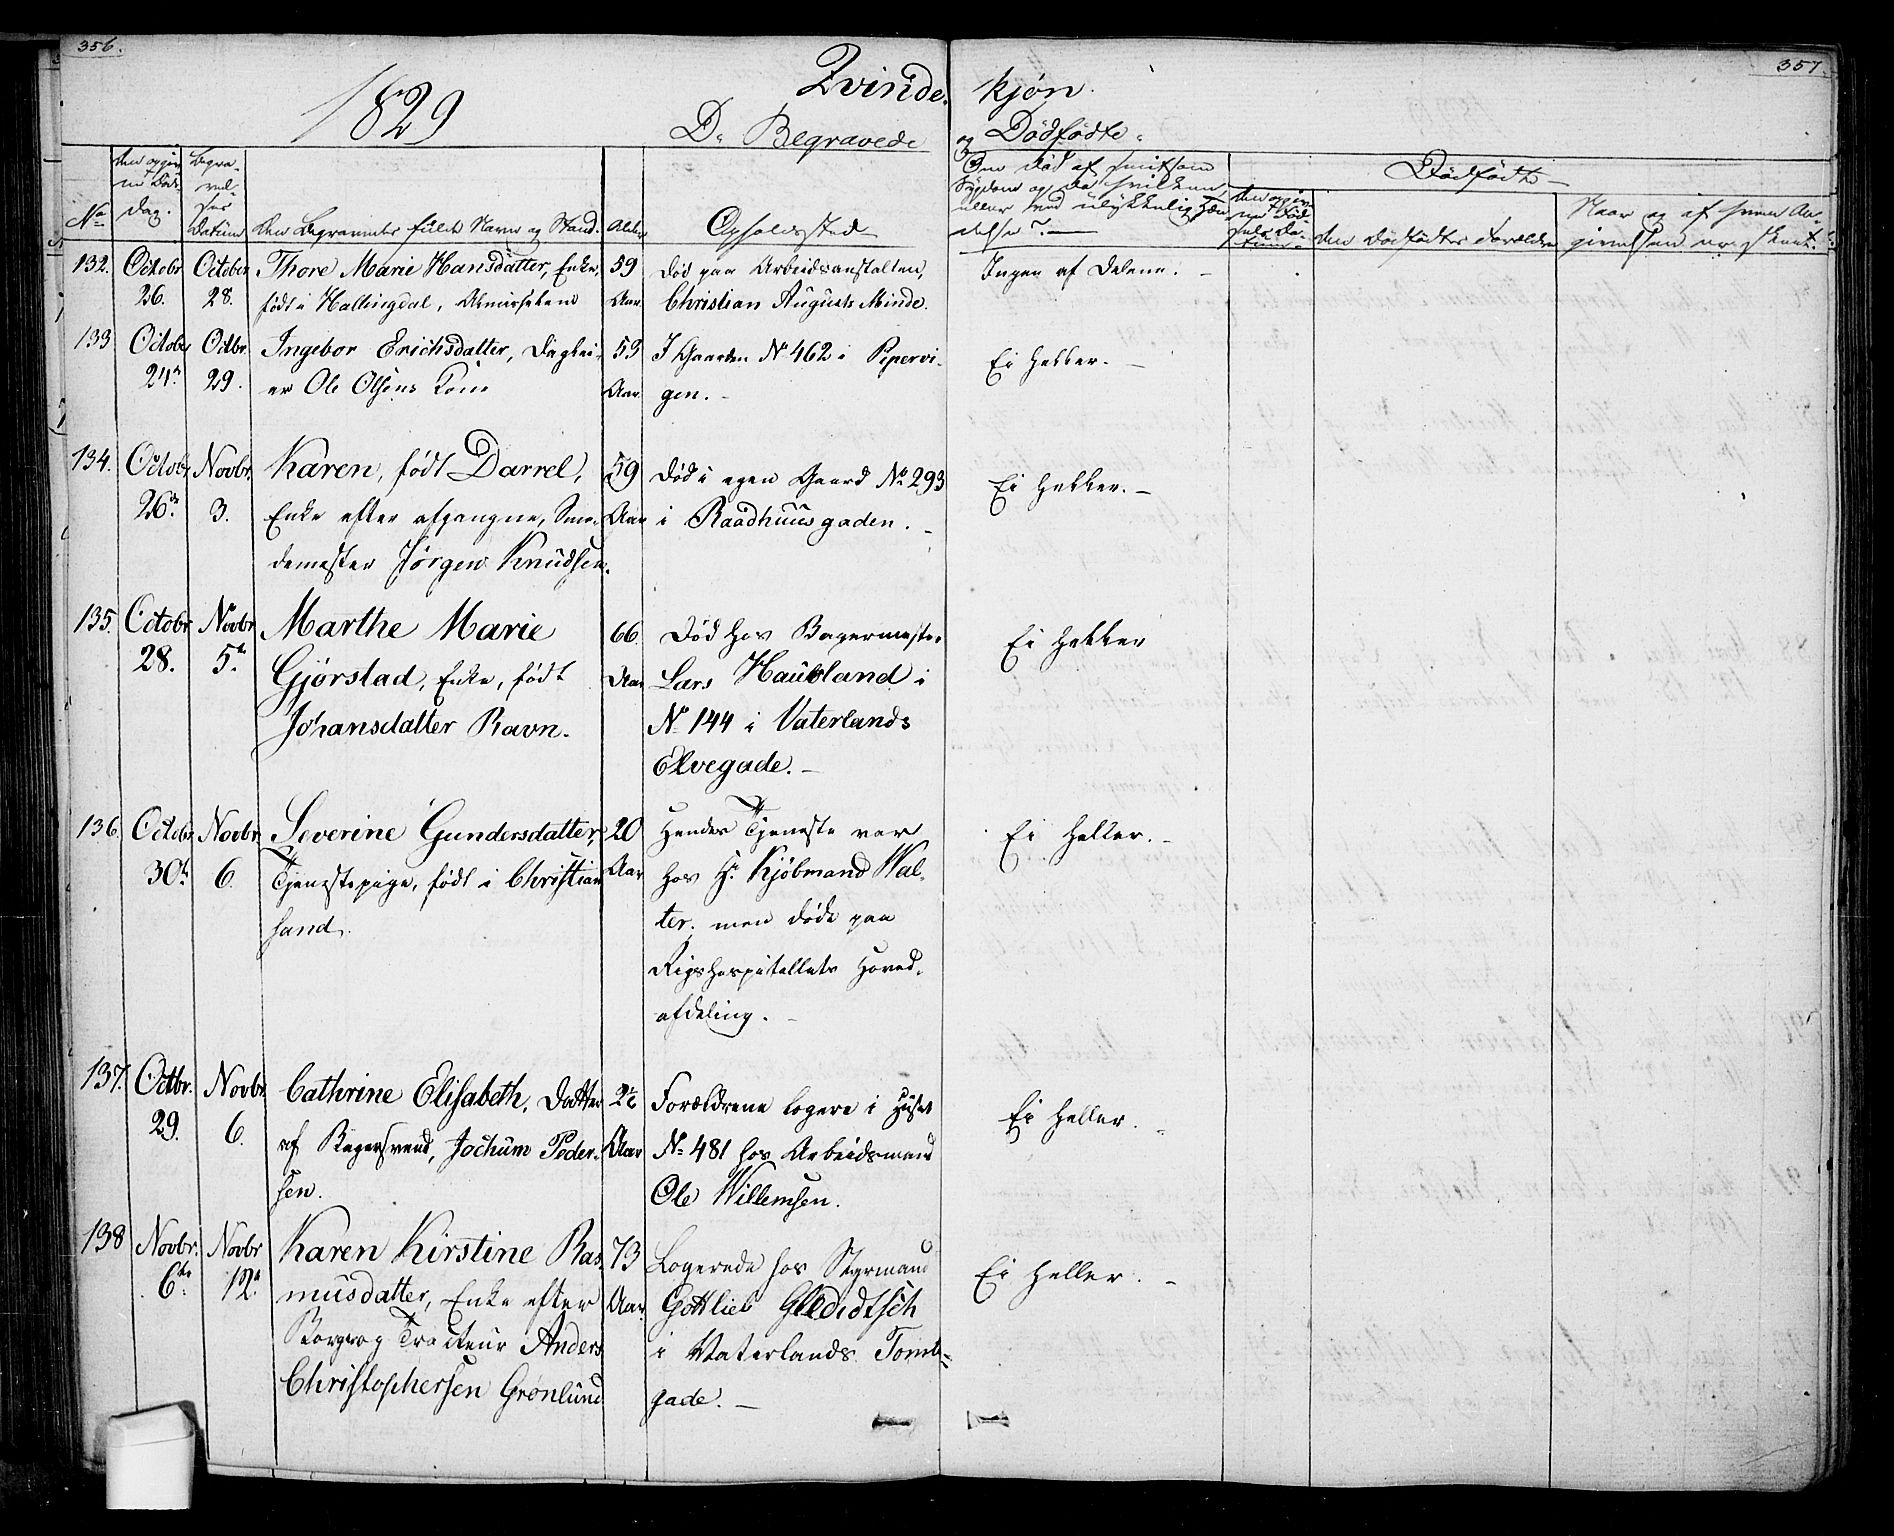 356.
357.
1829
Qvinde kjøn.
De Begravede og Dødfødte.
No
Den opgivne Døds Dag.
Begravelses Datum
Den Begravedes fulde Navn og Stand.
Alder
Opholdssted
Om død af smitsom Sygdom og da hvilken, eller ved ulykkelig Hændelse?
Dødfødte
Den Dødfødtes Forældre
Naar og af hvem Angivelsen er skeet.
132. Octobr 26. October 28. Thore Marie Hansdatter, Enke, født i Hallingdal, Almisselem 59 Aar Død paa Arbeidsanstalten, Christian Augusts Minde. Ingen af Delene.
133 October 24de Octbr 29. Ingebor Erichsdatter, Dagleier Ole Olsens Kone 53 Aar I Gaarden No 462 i Pipervigen. Ei heller.
134. Octobr 26de Novbr. 3. Karen, født Darrel, Enke efter afgangne, Smedemester Jørgen Knudsen. 59 Aar Død i egen Gaard No 293 i Raadhuusgaden. Ei heller.
135. Octobr 28. Novbr 5te Marthe Marie Gjørstad, Enke, født Johansdatter Ravn. 66 Aar Død hos Bagermester Lars Haubland i No 144 i Vaterlands Elvegade. Ei heller
136. Octobr 30te Novbr 6. Severine Gundersdatter, Tjenestepige, født i Christiansand. 20 Aar Hendes Tjeneste var hos Hr. Kjøbmand Walter, men døde paa Rigshospitallets Hovedafdeling. Ei heller.
137. Octbr. 29. Novbr. 6. Cathrine Elisabeth, Datter af Bagersvend, Jochum Pedersen. 2½ Aar Forældrene logere i Huset No 481 hos Arbeidsmand Ole Willemsen. Ei heller.
138 Novbr. 6te Novbr 12te Karen Kirstine Rasmusdatter, Enke efter Borger og Tracteur Anders Christophersen Grønlund 73 Aar. Logerede hos Styrmand Gottlieb Gledidtsch i Vaterlands Tomtegade. Ei heller.